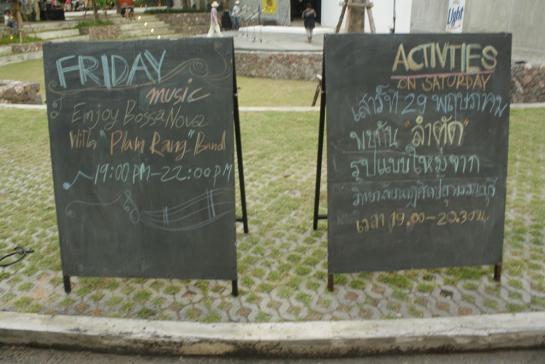 FRIDAY
music
Enjoy Bossa Nova
With "Plam Rang" Band
19:00 PM-22:00 PM
ACTIVITIES
ON SATURDAY
เสาร์ที่ 29 พฤษภาคม
พบกับ "ลำตัด"
รูปแบบใหม่จาก
เวลา 19.00-20.30 น
Light